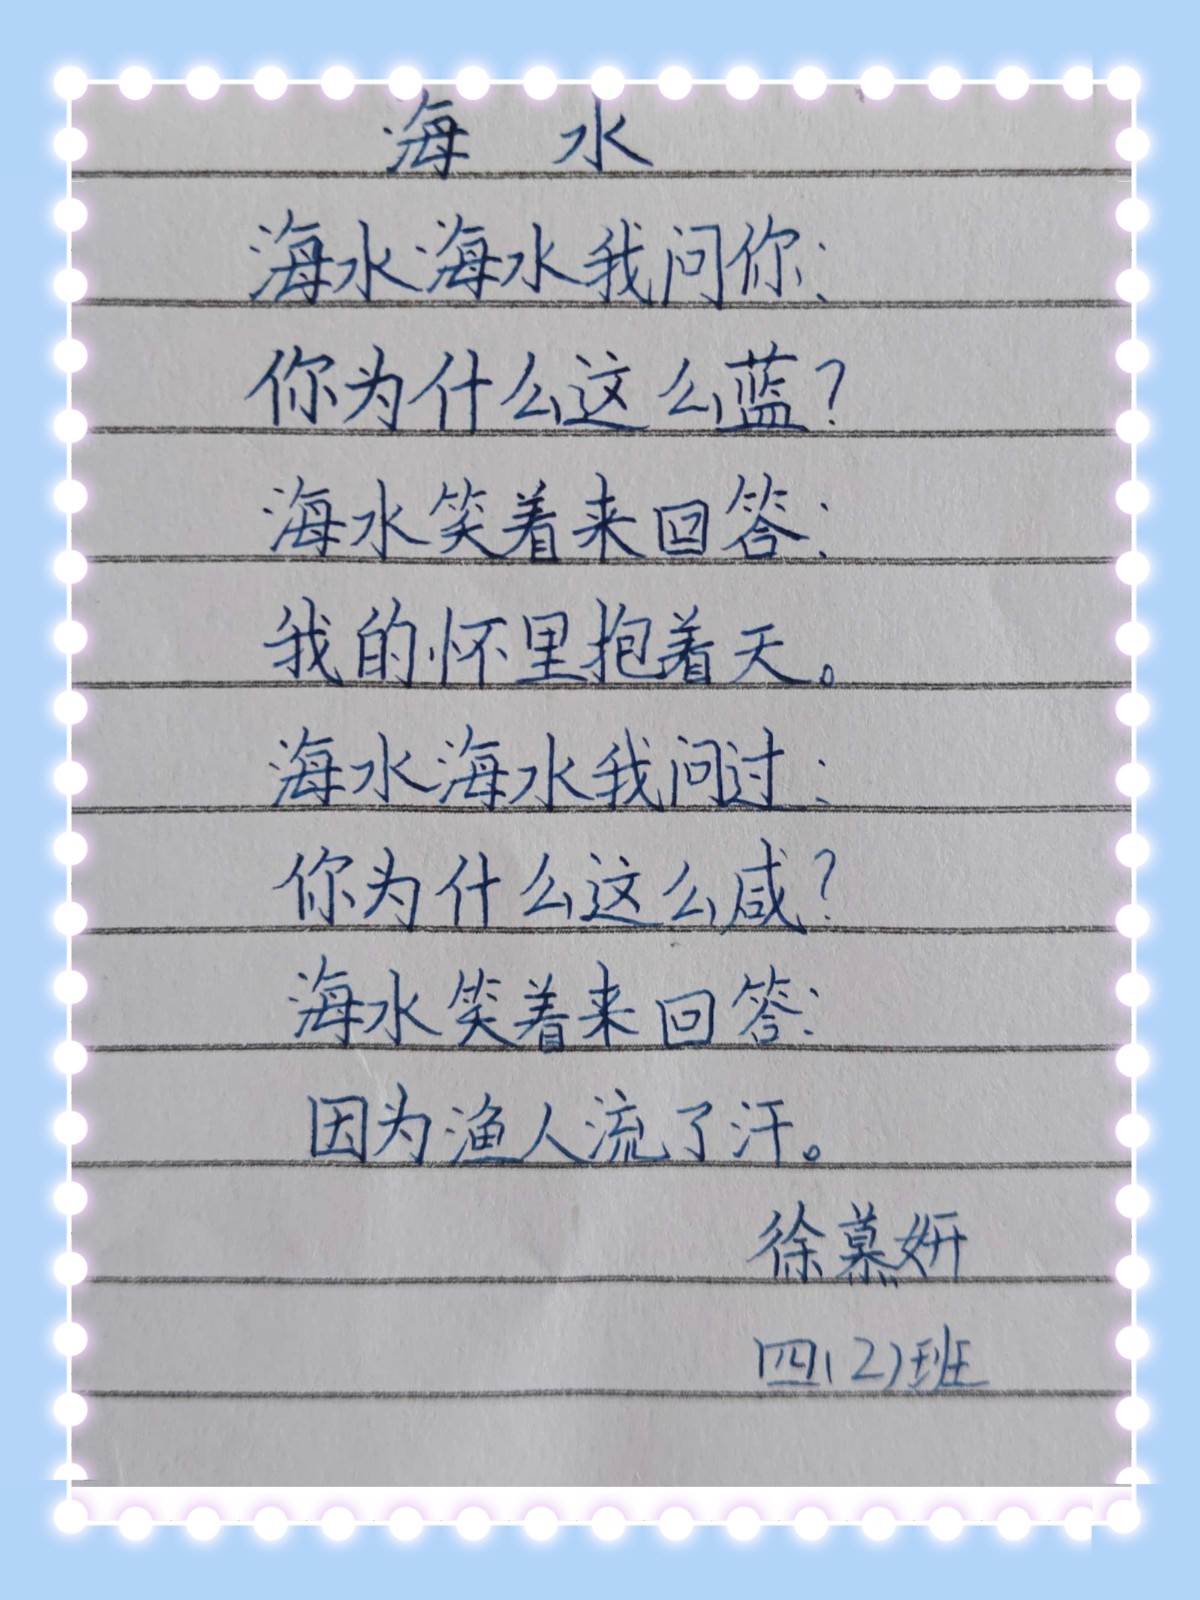 海 水
海水海水我问你:
你为什么这么蓝?
海水笑着来回答:
我的怀里抱着天。
海水海水我问过:
你为什么这么咸?
海水笑着来回答:
因为渔人流了汗。
徐慕妍
四(2)班